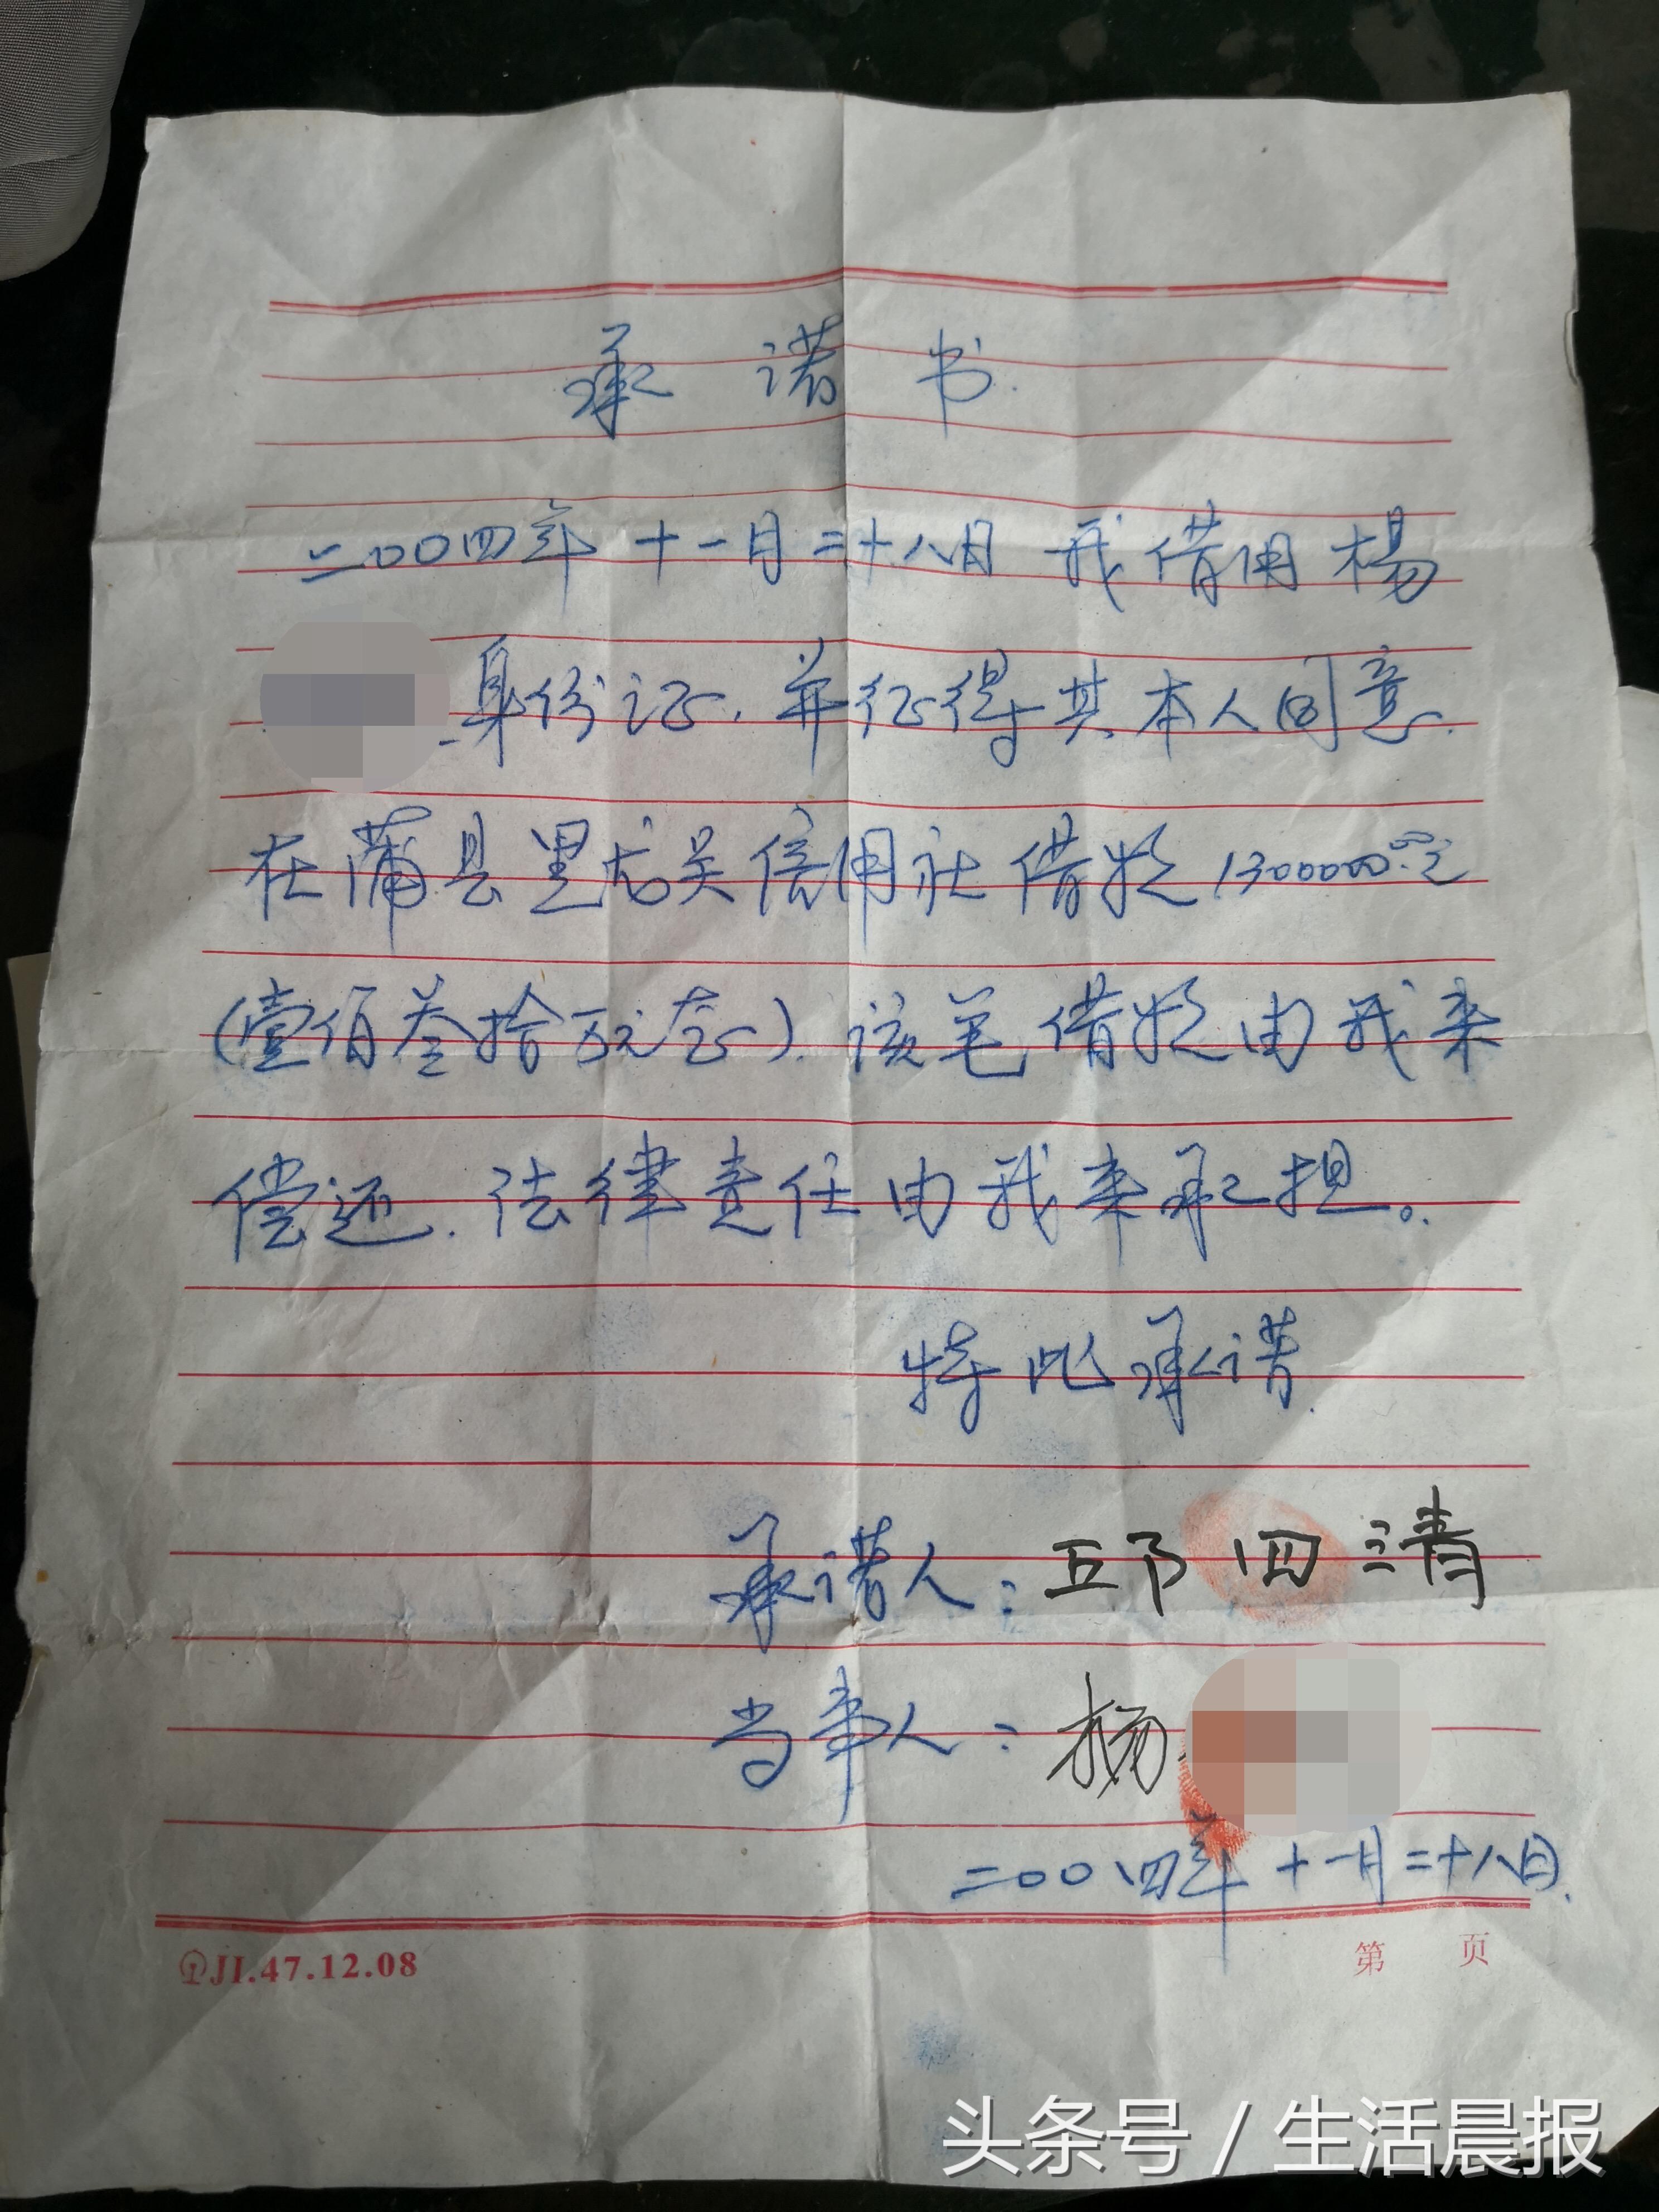 承诺书
二〇〇四年十一月二十八日我借用杨
身份证.并征得其本人同意.
在蒲县黑龙关信用社借款1300000.00元
(壹佰叁拾万元整).该笔借款由我来
偿还.法律责任由我来承担。
特此承诺.
承诺人:邱四清
当事人:杨
二〇〇四年十一月二十八日.
JI.47.12.08
第 页
头条号/生活晨报